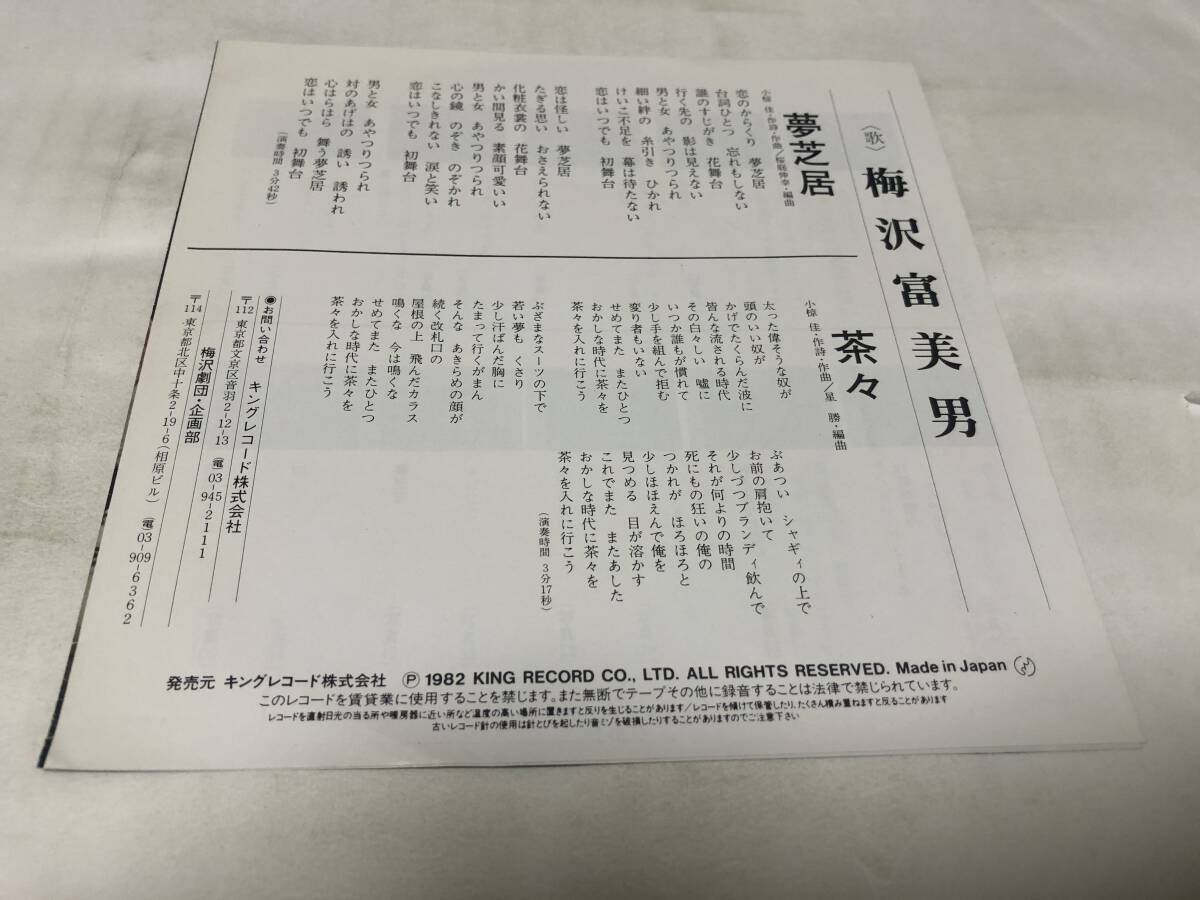 〈歌〉 梅沢富美男
夢芝居
小椋 佳・作詩・作曲／桜庭伸幸・編曲
恋のからくり 夢芝居
台詞ひとつ 忘れもしない
誰のすじがき 花舞台
行く先の 影は見えない
男と女 あやつりつられ
細い絆の 糸引き ひかれ
けいこ不足を 幕は待たない
恋はいつでも 初舞台
恋は怪しい 夢芝居
たぎる思い おさえられない
化粧衣裳の 花舞台
かい間見る 素顔可愛いい
男と女 あやつりつられ
心の鏡 のぞき のぞかれ
こなしきれない 涙と笑い
恋はいつでも 初舞台
男と女 あやつりつられ
対のあげはの 誘い 誘われ
心はらはら 舞う夢芝居
恋はいつでも 初舞台
（演奏時間 3分42秒）
茶々
小椋 佳・作詩・作曲／星 勝・編曲
太った偉そうな奴が
頭のいい奴が
かげでたくらんだ波に
皆んな流される時代
その白々しい 嘘に
いつか誰もが慣れて
少し手を組んで拒む
変り者もいない
せめてまた またひとつ
おかしな時代に茶々を
茶々を入れに行こう
ぶざまなスーツの下で
若い夢も くさり
少し汗ばんだ胸に
たまって行くがまん
そんな あきらめの顔が
続く改札口の
屋根の上 飛んだカラス
鳴くな 今は鳴くな
せめてまた またひとつ
おかしな時代に茶々を
茶々を入れに行こう
ぶあつい シャギィの上で
お前の肩抱いて
少しづつブランディ飲んで
それが何よりの時間
死にもの狂いの俺の
つかれが ほろほろと
少しほほえんで俺を
見つめる 目が溶かす
これでまた またあした
おかしな時代に茶々を
茶々を入れに行こう
（演奏時間 3分17秒）
●お問い合わせ キングレコード株式会社
〒112 東京都文京区音羽2-12-13 (電)03-945-2111
梅沢劇団・企画部
〒114 東京都北区中十条2-19-6（相原ビル） (電)03-909-6362
発売元 キングレコード株式会社 Ⓟ 1982 KING RECORD CO., LTD. ALL RIGHTS RESERVED. Made in Japan
このレコードを賃貸業に使用することを禁じます。また無断でテープその他に録音することは法律で禁じられています。
レコードを直射日光の当る所や暖房器に近い所など温度の高い場所に置きますと反りを生じることがあります／レコードを傾けて保管したり、たくさん積み重ねますと反ることがあります
古いレコード針の使用は針とびを起したり音ミゾを破損したりすることがありますのでご注意下さい